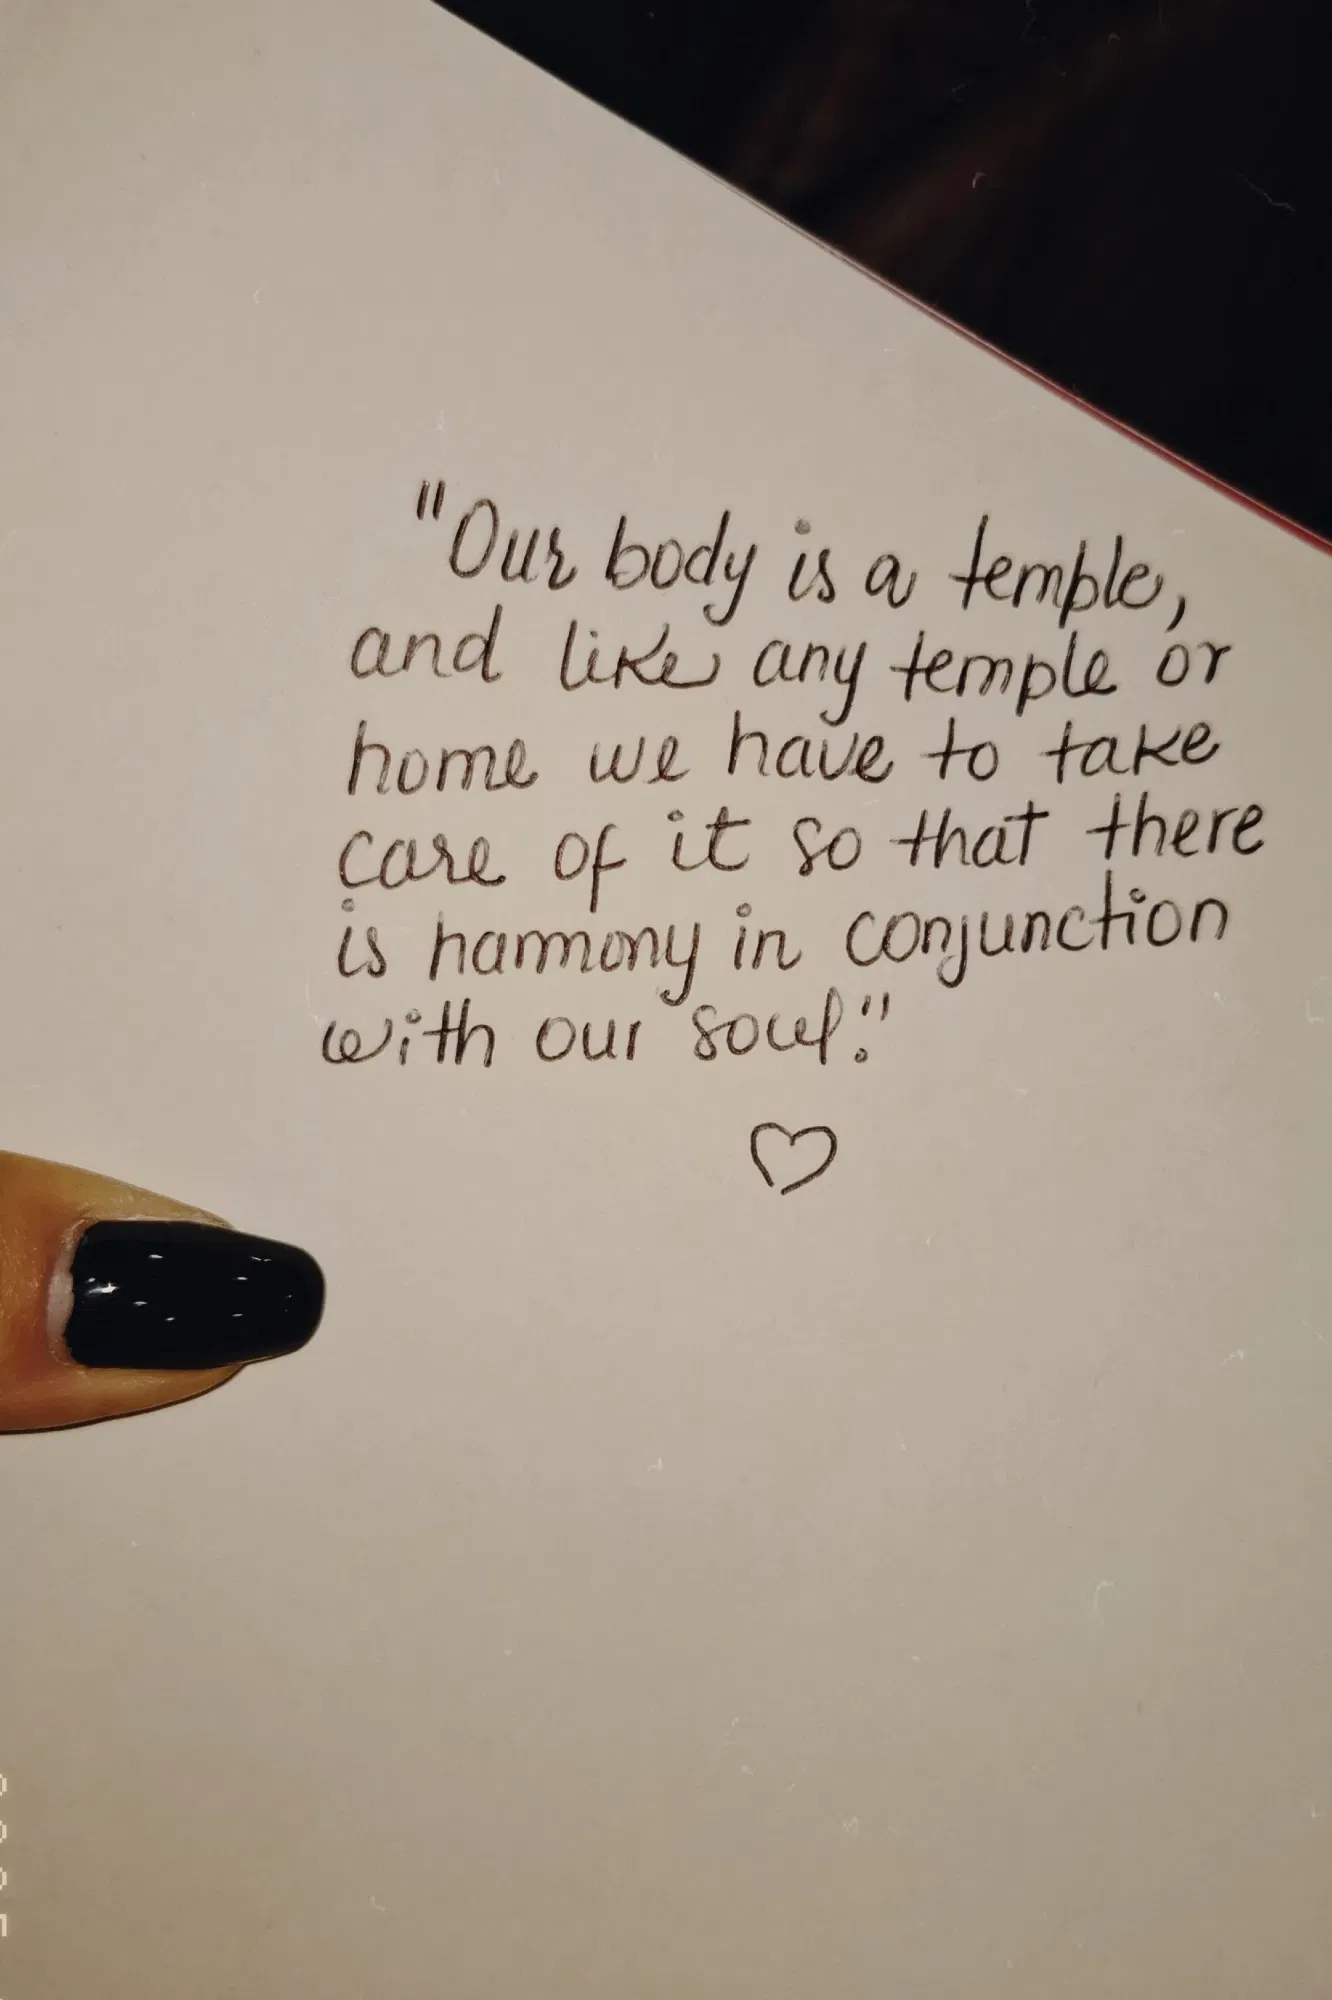 "Our body is a temple,
and like any temple or
home we have to take
care of it so that there
is harmony in conjunction
with our soul."